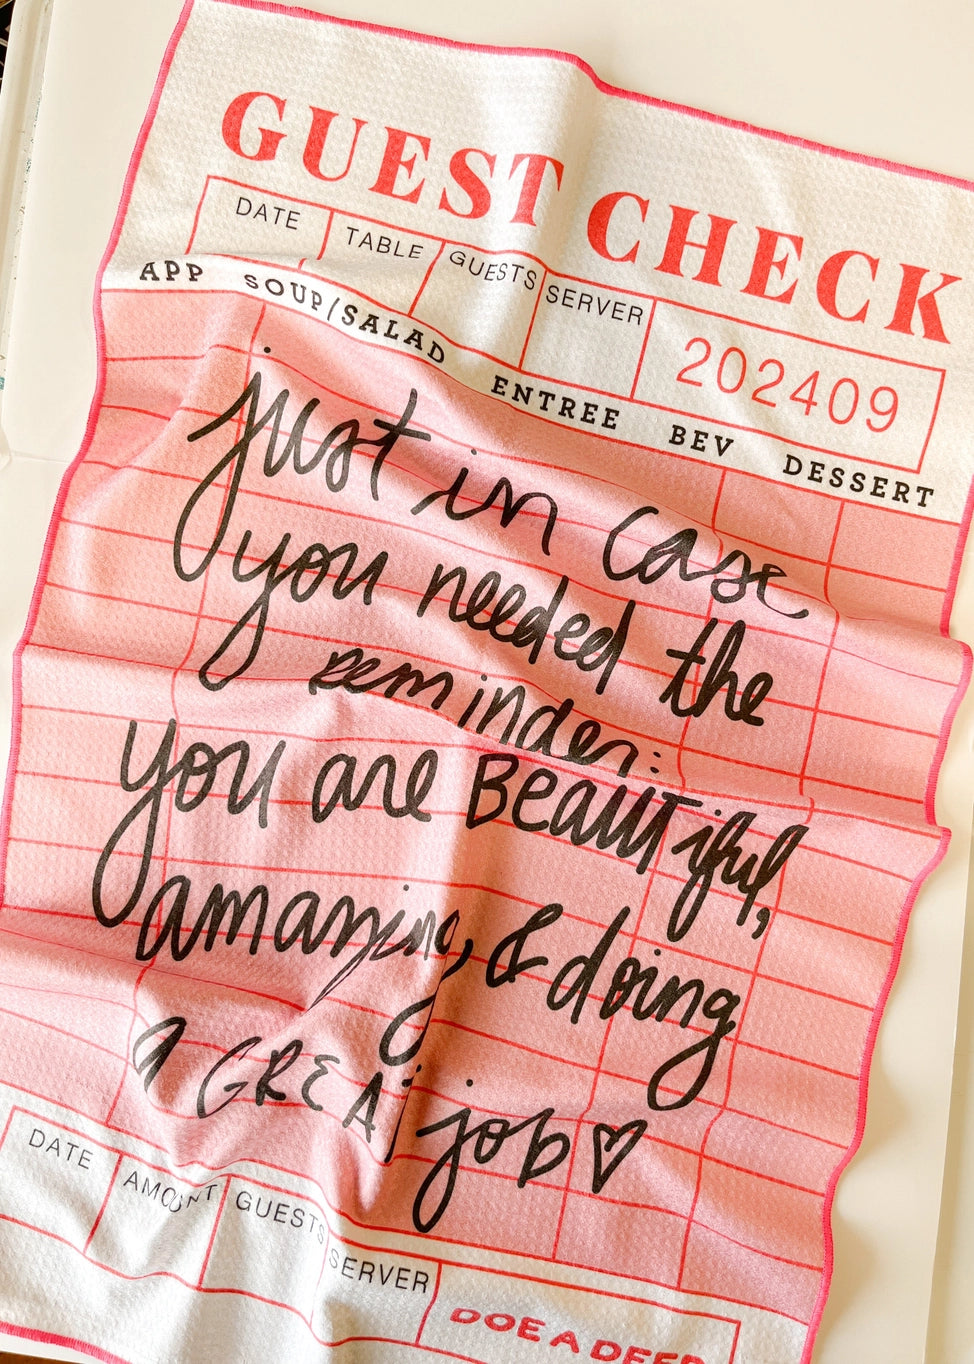 GUEST CHECK
DATE TABLE GUESTS SERVER
202409
APP SOUP/SALAD ENTREE BEV DESSERT
just in case
you needed the
reminder:
you are BEAUTiful,
amazing, & doing
a GREAT job
DATE AMOUNT GUESTS SERVER
DOE A DEER